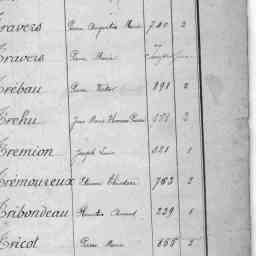 Travers Pierre Augustin Marie 740 2
Travers Pierre Marie
Trébau Pierre Victor 891 2
Trehu Jean Marie Thomas Pierre 571 2
Tremion Joseph Louis 821 1
Trémoureux Etienne Théodore 763 2
Tribondeau Armand 229 1
Tricot Pierre Marie 655 2